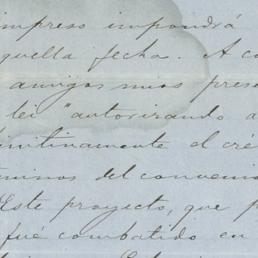 impreso impondrá
quella fecha. A c
amigos mios prese
lei "autorizando a
initivamente el cré
minos del convenio
Este proyecto, que p
fué combatido en